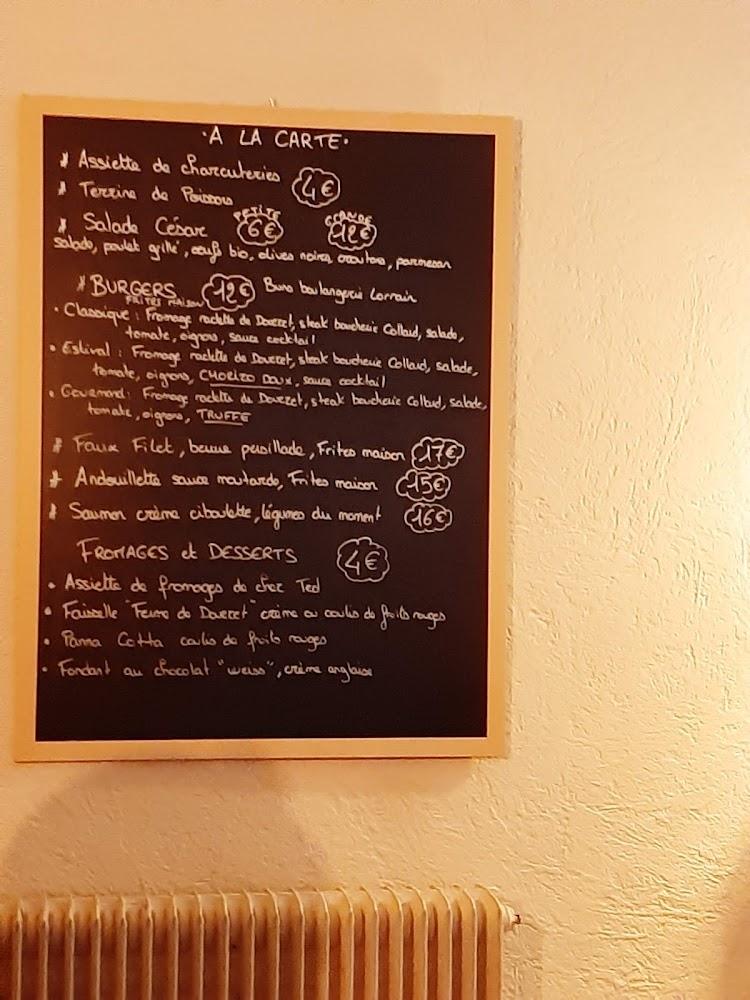 · A LA CARTE ·
* Assiette de charcuteries
* Terrine de Poissons 4€
* Salade César PETITE 6€ GRANDE 12€
salade, poulet grillé, œufs bio, olives noires, croutons, parmesan
* BURGERS 12€ Buns boulangerie Lorrain
FRITES MAISON
· Classique : Fromage raclette de Doueret, steak boucherie Colland, salade,
tomate, oignons, sauce cocktail
· Estival : Fromage raclette de Doueret, steak boucherie Colland, salade,
tomate, oignons, CHORIZO DOUX, sauce cocktail
· Gourmand : Fromage raclette de Doueret, steak boucherie Colland, salade,
tomate, oignons, TRUFFE
* Faux Filet, beurre persillade, Frites maison 17€
* Andouillette sauce moutarde, Frites maison 15€
* Saumon crème ciboulette, légumes du moment 16€
FROMAGES et DESSERTS 4€
· Assiette de fromages de chez Ted
· Faisselle "Ferme de Doueret" crème ou coulis de fruits rouges
· Panna Cotta coulis de fruits rouges
· Fondant au chocolat "weiss", crème anglaise